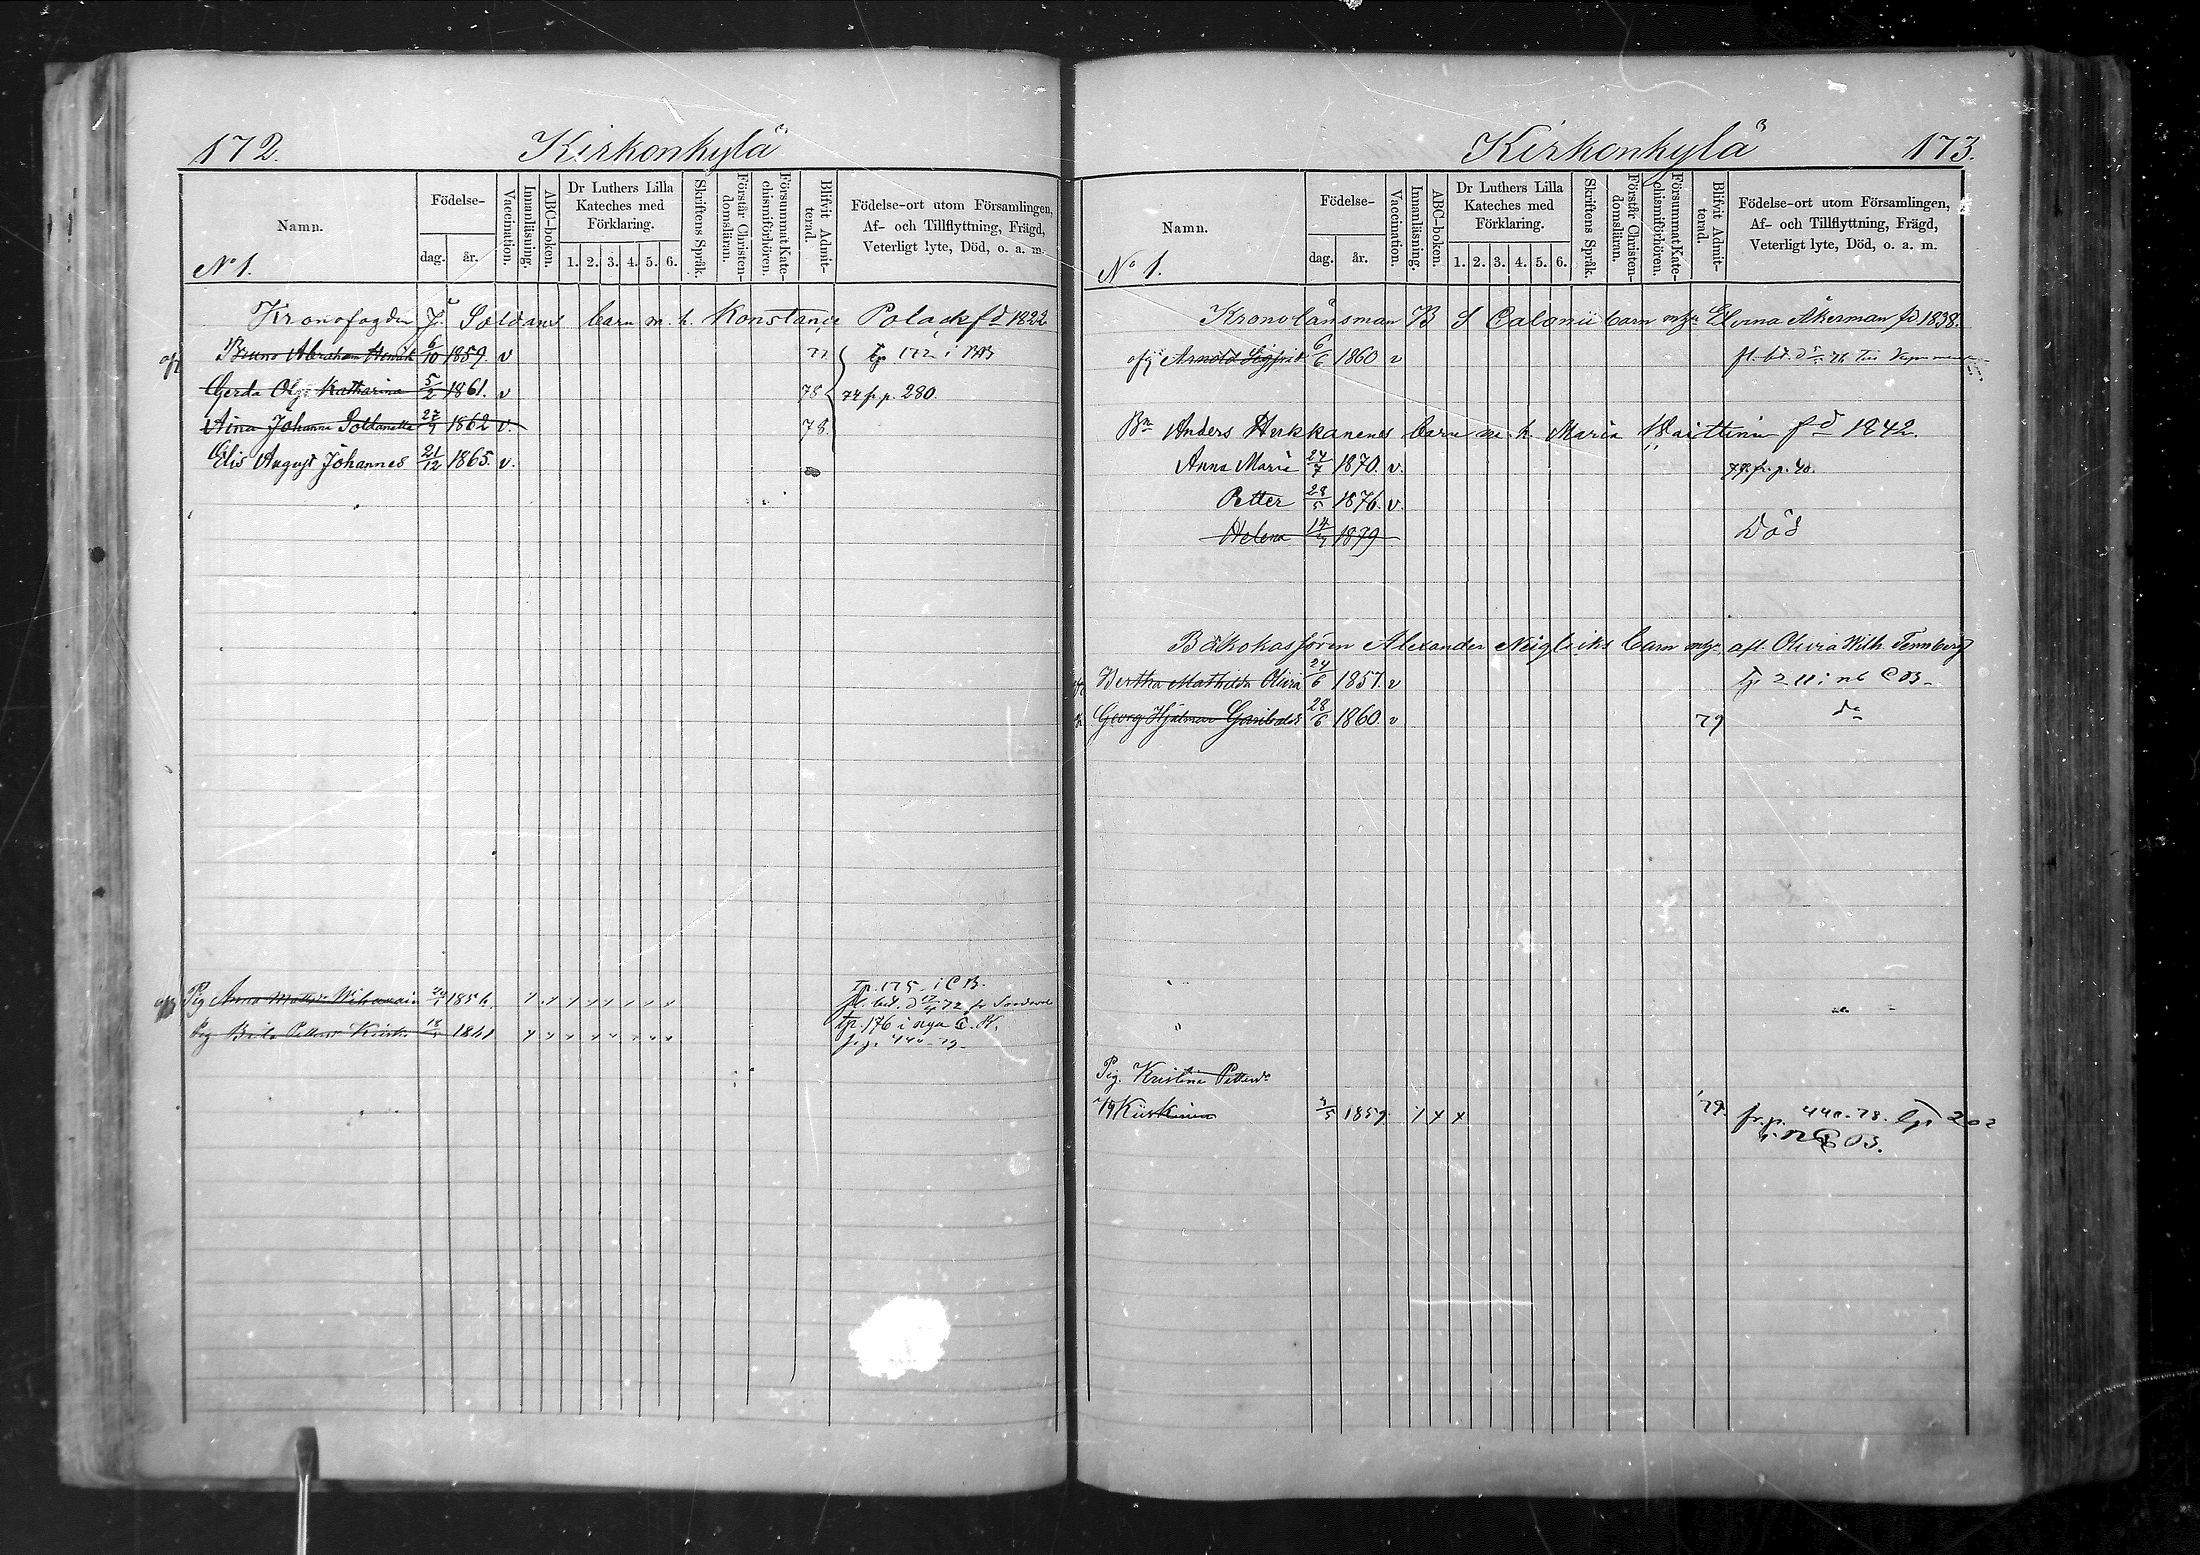 172.
Kirkonkylä
Namn.
Födelse-
dag.
år.
Vaccination.
Innanläsning.
ABC-boken.
Dr Luthers Lilla
Kateches med
Förklaring.
1. 2. 3. 4. 5. 6.
Skriftens Språk.
Förstår Christen-
domsläran.
Försummat Kate-
chismiförhören.
Blifvit Admit-
terad.
Födelse-ort utom Församlingen,
Af- och Tillflyttning, Frägd,
Veterligt lyte, Död, o. a. m.
No 1.
Kronofogden J. Soldans barn m. h. Konstance Polack fd 1822
Bruno Abraham Henrik 6/10 1859. v 77 172 i
Gerda Olga Katharina 5/2 1861. v 78 74 fr. p. 280.
Aina Johanna Soldanella 27/7 1862 v. 78.
Elis August Johannes 21/12 1865. v.
Tp. 175 i C B.
Pig Anna
Pig Petters 1841
176 i nya
Kirkonkylä
173.
Namn.
Födelse-
dag.
år.
Vaccination.
Innanläsning.
ABC-boken.
Dr Luthers Lilla
Kateches med
Förklaring.
1. 2. 3. 4. 5. 6.
Skriftens Språk.
Förstår Christen-
domsläran.
Försummat Kate-
chismiförhören.
Blifvit Admit-
terad.
Födelse-ort utom Församlingen,
Af- och Tillflyttning, Frägd,
Veterligt lyte, Död, o. a. m.
No 1.
Kronolänsman B S Calonii barn Elvina Åkerman fd 1838.
Arnold Sigfrid 6/6 1860 v
Bn Anders Hirkkanenes barn m. h. Maria fd 1842.
Anna Maria 24/7 1870. v. 79. fr. p. 40.
Petter 28/5 1876. v.
Helena 1879 Död
Alexander Neiglicks barn afl. Olivia Wilh. Tennberg
Bertha Mathilda Olivia 24/6 1857. v
Georg Hjalmar Garibaldi 28/6 1860 v 79 do
Pig. Kristina Pettersdr
1859 79. fr. p. 440-78.